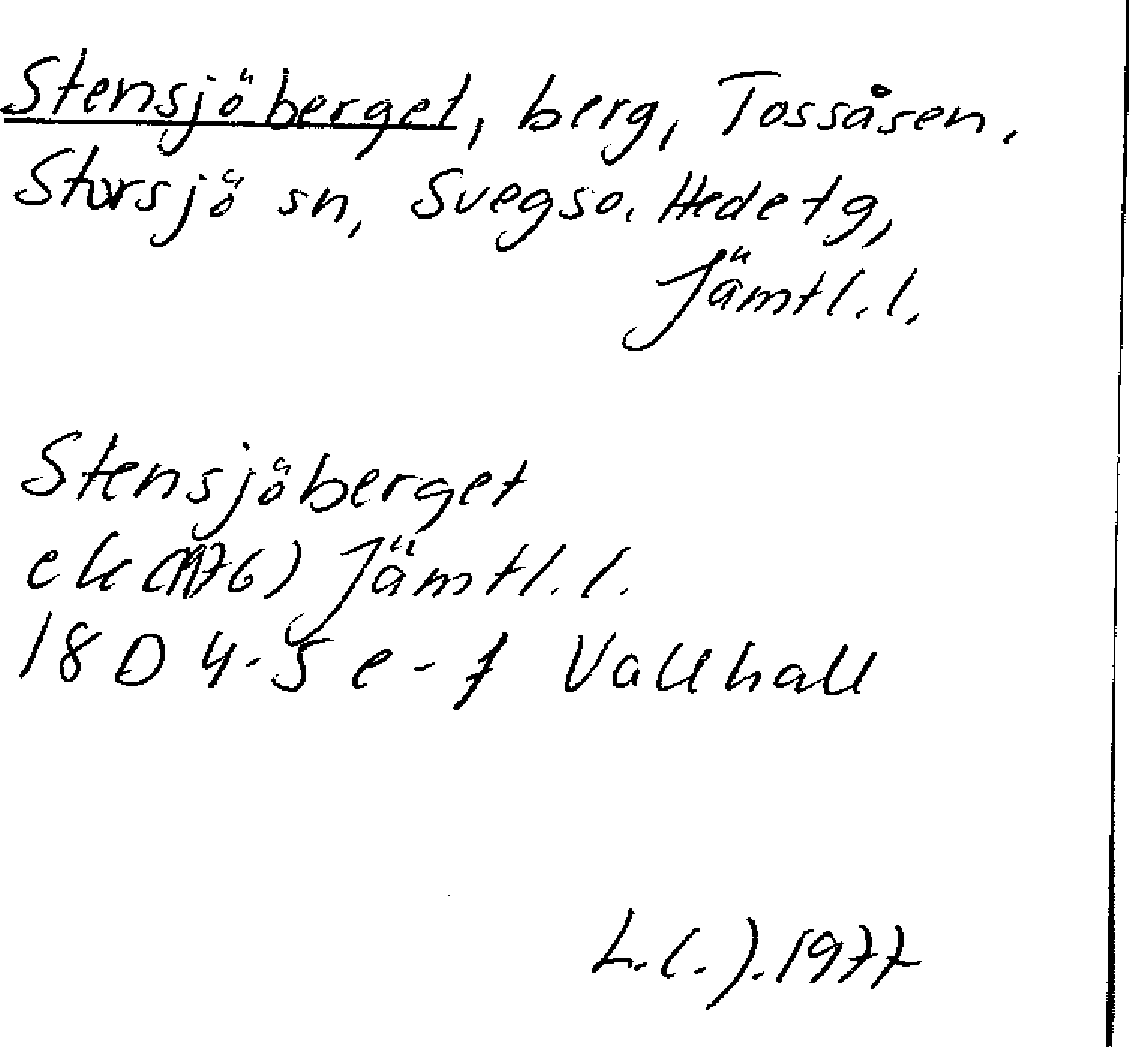 Stensjöberget, berg, Tossåsen.
Storsjö sn, Svegs o. Hede tg,
Jämtl. l.
Stensjöberget
ek (1976) Jämtl. l.
18 D 4-5 e-f Vallhall
L. (.). 1977